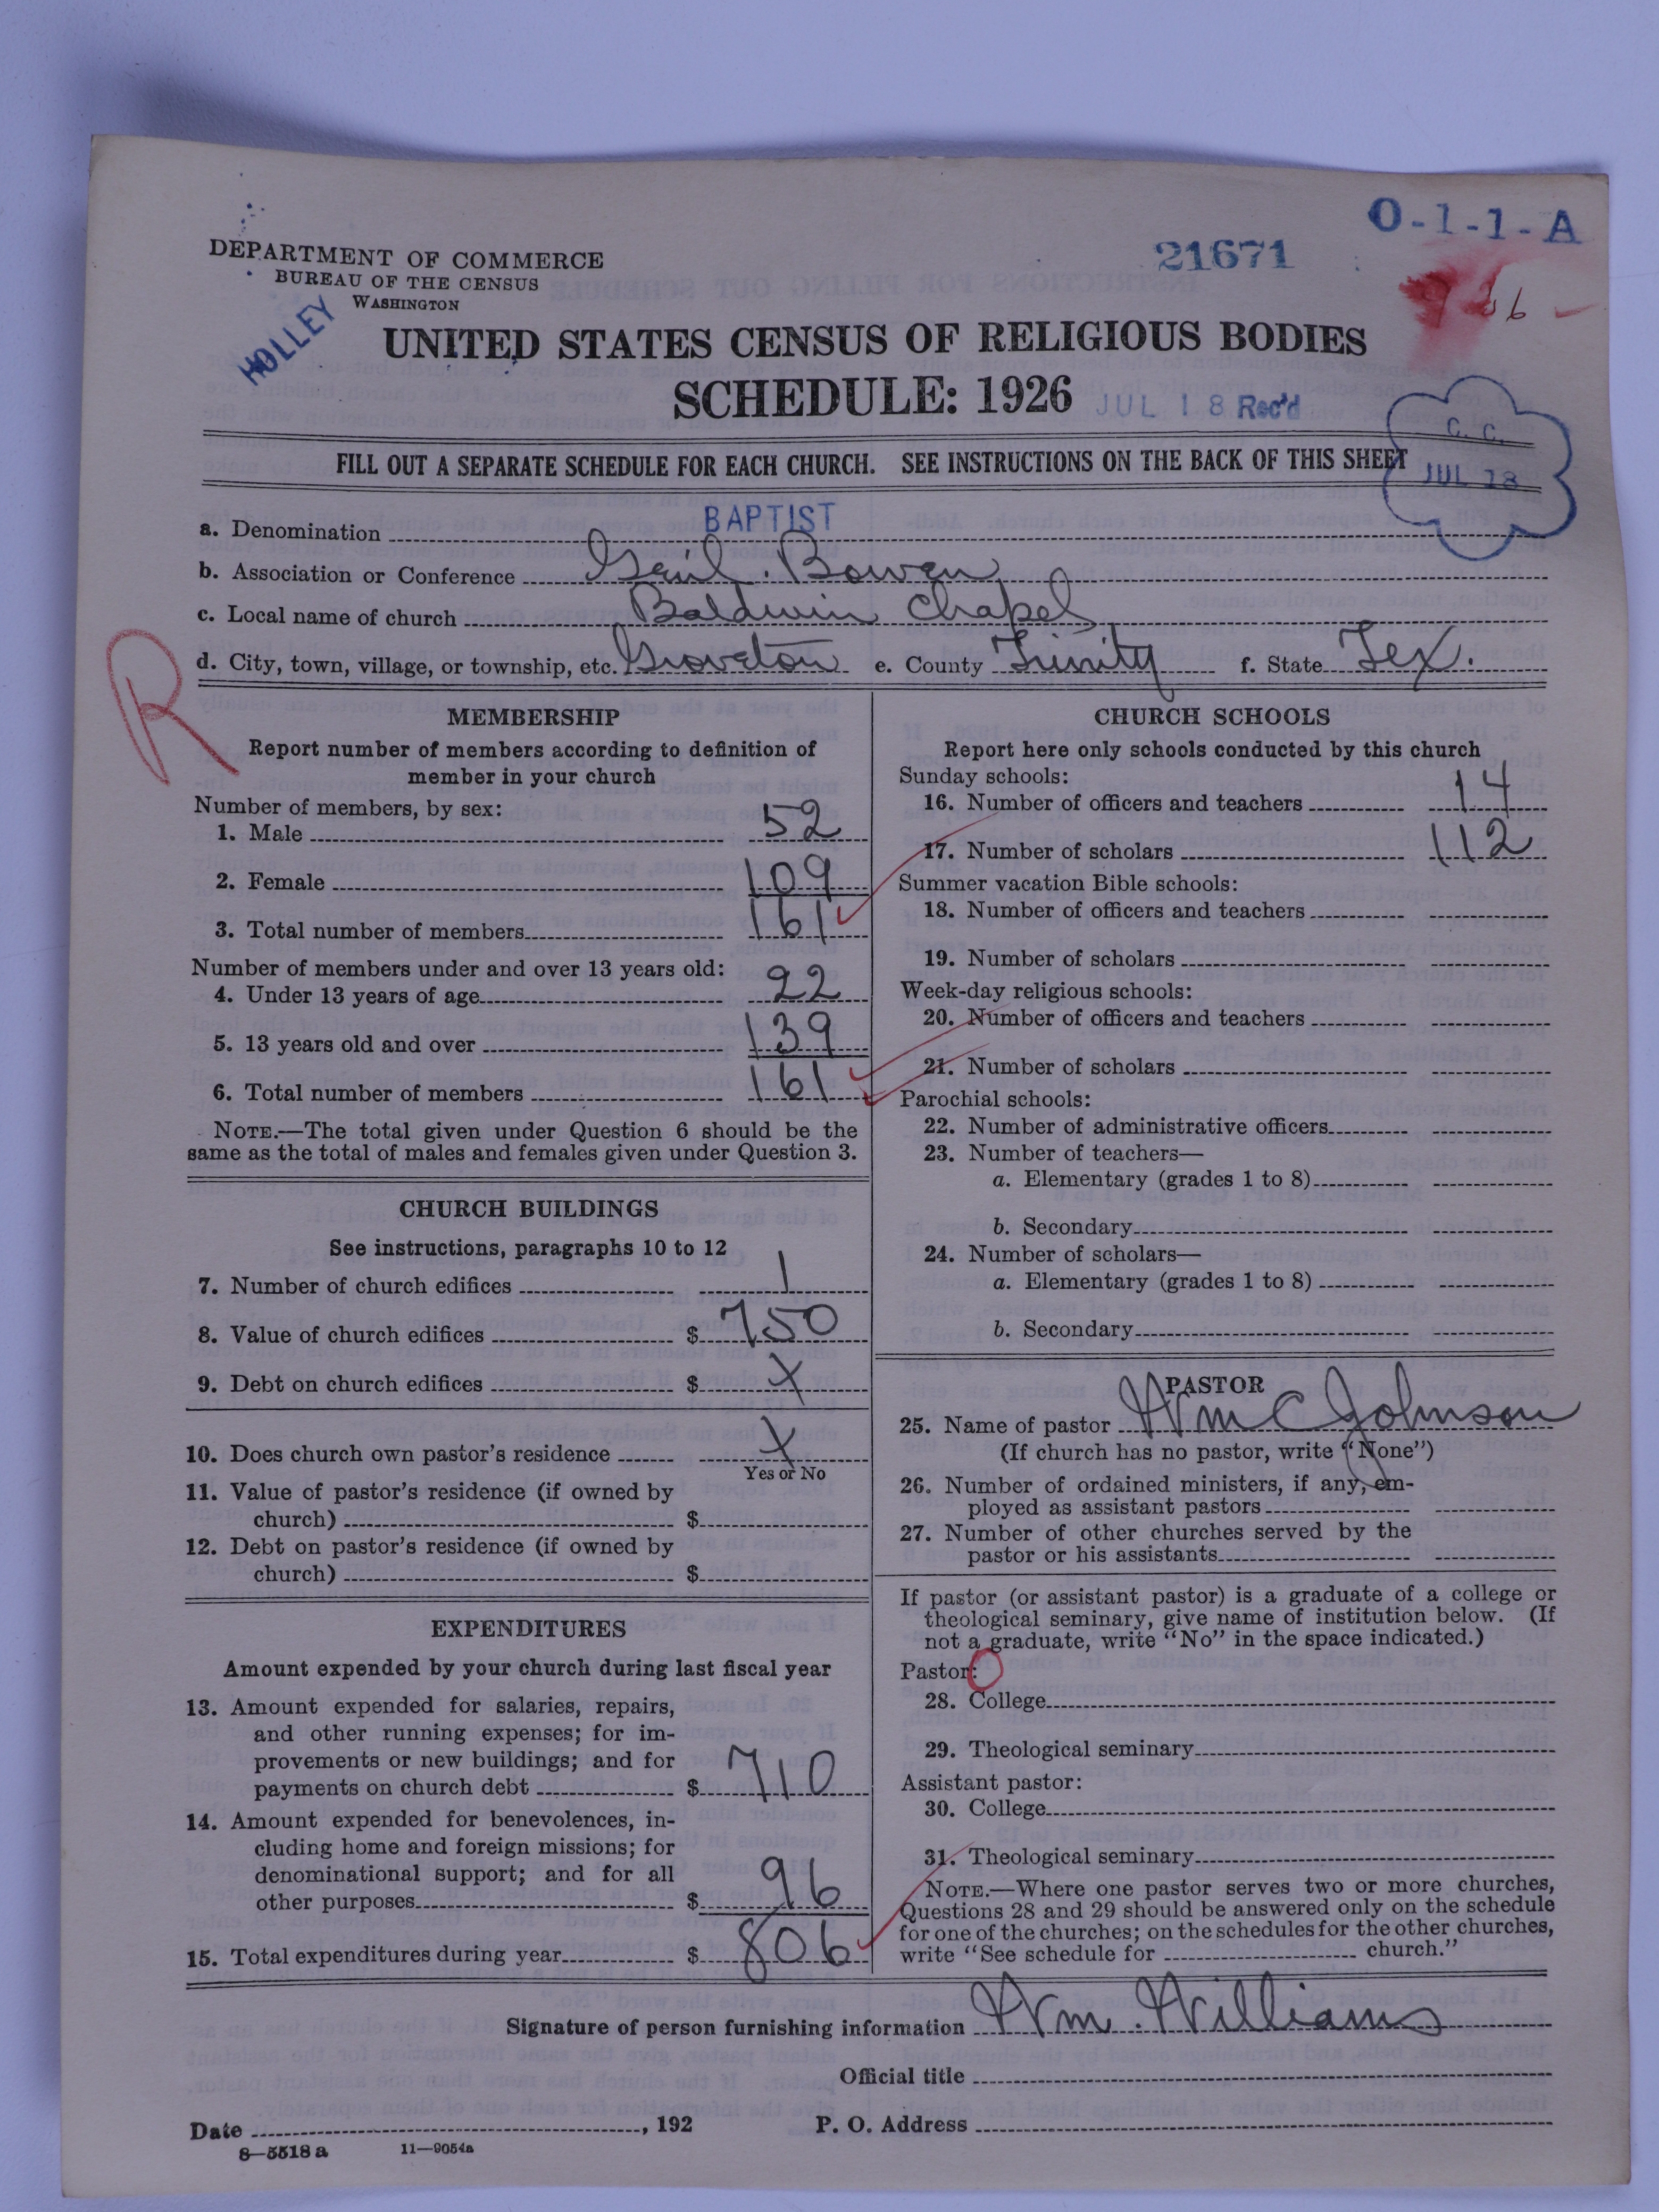 O-1-1-A
DEPARTMENT OF COMMERCE
BUREAU OF THE CENSUS
WASHINGTON
21671
HOLLEY
UNITED STATES CENSUS OF RELIGIOUS BODIES
SCHEDULE: 1926
JUL 18 Rec'd
C. C.
JUL 18
FILL OUT A SEPARATE SCHEDULE FOR EACH CHURCH. SEE INSTRUCTIONS ON THE BACK OF THIS SHEET
a. Denomination BAPTIST
b. Association or Conference Bowen
c. Local name of church Baldwin Chapel
d. City, town, village, or township, etc. Groveton e. County Trinity f. State Tex.
R
MEMBERSHIP
Report number of members according to definition of
member in your church
Number of members, by sex:
1. Male 52
2. Female 109
3. Total number of members 161
Number of members under and over 13 years old:
4. Under 13 years of age 22
5. 13 years old and over 139
6. Total number of members 161
NOTE.—The total given under Question 6 should be the
same as the total of males and females given under Question 3.
CHURCH BUILDINGS
See instructions, paragraphs 10 to 12
7. Number of church edifices 1
8. Value of church edifices $ 750
9. Debt on church edifices $ X
10. Does church own pastor's residence X
Yes or No
11. Value of pastor's residence (if owned by
church) $
12. Debt on pastor's residence (if owned by
church) $
EXPENDITURES
Amount expended by your church during last fiscal year
13. Amount expended for salaries, repairs,
and other running expenses; for im-
provements or new buildings; and for
payments on church debt $ 710
14. Amount expended for benevolences, in-
cluding home and foreign missions; for
denominational support; and for all
other purposes $ 96
15. Total expenditures during year $ 806
CHURCH SCHOOLS
Report here only schools conducted by this church
Sunday schools:
16. Number of officers and teachers 14
17. Number of scholars 112
Summer vacation Bible schools:
18. Number of officers and teachers
19. Number of scholars
Week-day religious schools:
20. Number of officers and teachers
21. Number of scholars
Parochial schools:
22. Number of administrative officers
23. Number of teachers—
a. Elementary (grades 1 to 8)
b. Secondary
24. Number of scholars—
a. Elementary (grades 1 to 8)
b. Secondary
PASTOR
25. Name of pastor Wm C Johnson
(If church has no pastor, write "None")
26. Number of ordained ministers, if any, em-
ployed as assistant pastors
27. Number of other churches served by the
pastor or his assistants
If pastor (or assistant pastor) is a graduate of a college or
theological seminary, give name of institution below. (If
not a graduate, write "No" in the space indicated.)
Pastor:
28. College
29. Theological seminary
Assistant pastor:
30. College
31. Theological seminary
NOTE.—Where one pastor serves two or more churches,
Questions 28 and 29 should be answered only on the schedule
for one of the churches; on the schedules for the other churches,
write "See schedule for church."
Signature of person furnishing information Wm. Williams
Official title
Date , 192 P. O. Address
8—5518 a 11—9054a